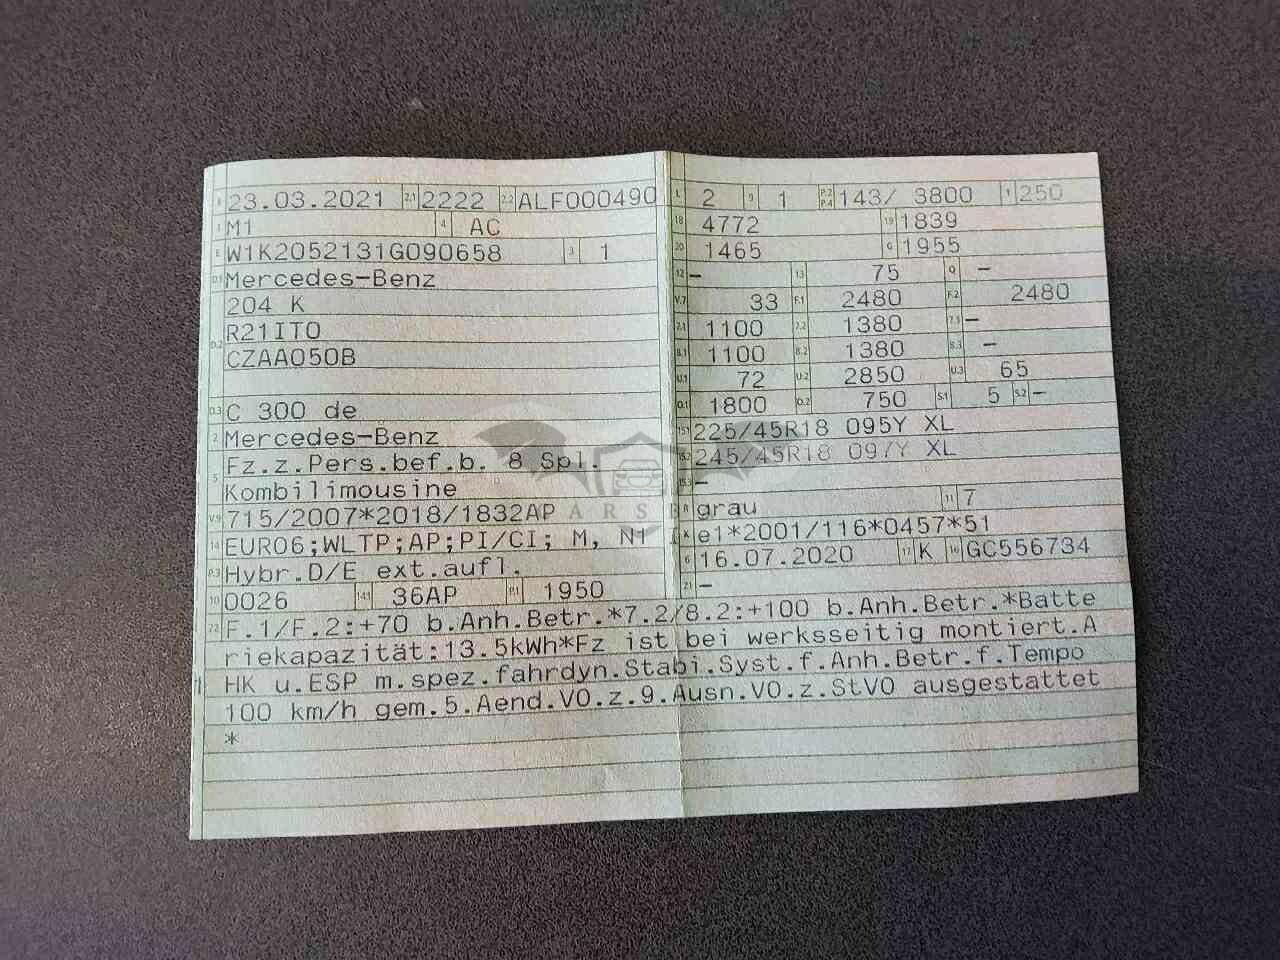 B 23.03.2021 2.1 2222 2.2 ALF000490
J M1 4 AC
E W1K2052131G090658 3 1
D.1 Mercedes-Benz
204 K
D.2 R21ITO
CZAA050B
D.3 C 300 de
2 Mercedes-Benz
5 Fz.z.Pers.bef.b. 8 Spl.
Kombilimousine
V.9 715/2007*2018/1832AP
14 EURO6;WLTP;AP;PI/CI; M, N1 I
P.3 Hybr.D/E ext.aufl.
10 0026 14.1 36AP P.1 1950
L 2 9 1 P.2 P.4 143/ 3800 T 250
18 4772 19 1839
20 1465 G 1955
12 – 13 75 Q –
V.7 33 F.1 2480 F.2 2480
7.1 1100 7.2 1380 7.3 –
8.1 1100 8.2 1380 8.3 –
U.1 72 U.2 2850 U.3 65
O.1 1800 O.2 750 S.1 5 S.2 –
15.1 225/45R18 095Y XL
15.2 245/45R18 097Y XL
15.3 –
R grau 11 7
K e1*2001/116*0457*51
6 16.07.2020 17 K 16 GC556734
21 –
22 F.1/F.2:+70 b.Anh.Betr.*7.2/8.2:+100 b.Anh.Betr.*Batte
riekapazität:13.5kWh*Fz ist bei werksseitig montiert.A
HK u.ESP m.spez.fahrdyn.Stabi.Syst.f.Anh.Betr.f.Tempo
100 km/h gem.5.Aend.VO.z.9.Ausn.VO.z.StVO ausgestattet
*